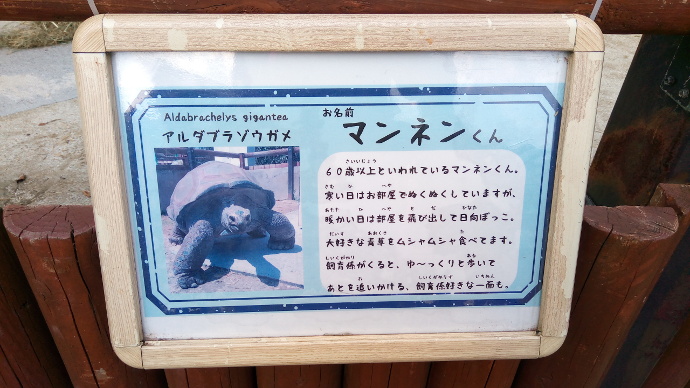 Aldabrachelys gigantea
アルダブラゾウガメ
お名前
マンネンくん
60歳以上といわれているマンネンくん。
寒い日はお部屋でぬくぬくしていますが、
暖かい日は部屋を飛び出して日向ぼっこ。
大好きな青草をムシャムシャ食べてます。
飼育係がくると、ゆ〜っくりと歩いて
あとを追いかける、飼育係好きな一面も。